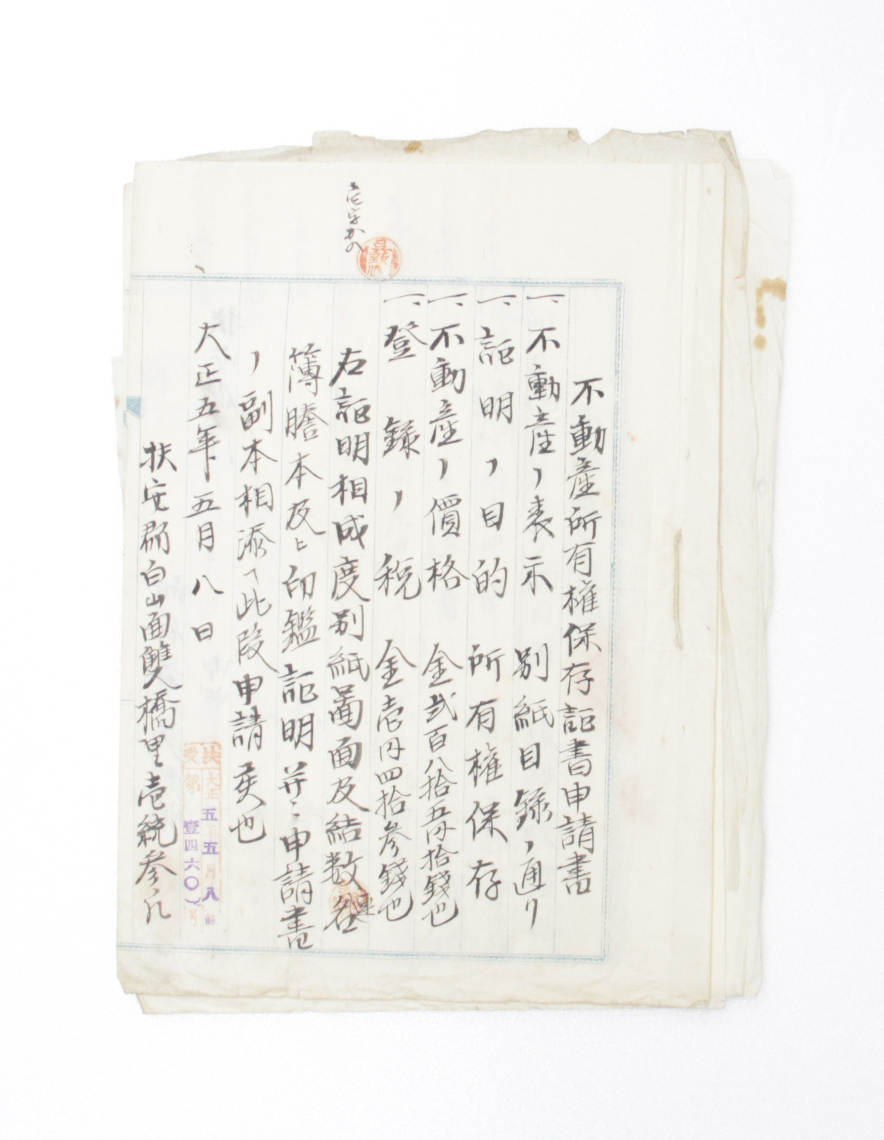 不動産所有權保存証書申請書
一、不動産ノ表示 別紙目録ノ通リ
一、証明ノ目的 所有權保存
一、不動産ノ價格 金弐百八拾五円拾錢也
一、登録ノ税 金壱円四拾参錢也
右証明相成度別紙圖面及結数名
簿謄本及ヒ印鑑証明并ニ申請書
ノ副本相添ヘ此段申請候也
大正五年五月八日
扶安郡白山面雙橋里壱統参戸
壱字加入
連
大正五年五月八日
第壹四六〇号